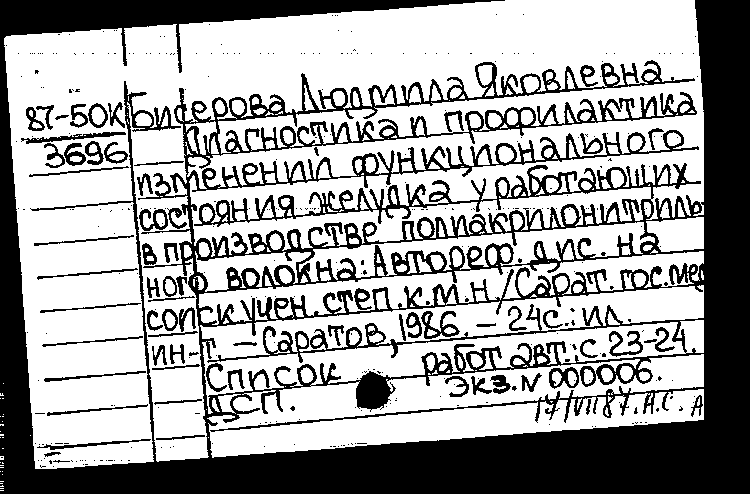 87-50К Бисерова, Людмила Яковлевна.
3696 Диагностика и профилактика
изменений функционального
состояния желудка у работающих
в производстве полиакрилонитриль
ного волокна: Автореф. дис. на
соиск учен. степ. к.м.н./Сарат. гос. мед
ин-т. – Саратов, 1986. – 24с.: ил.
Список работ авт.: с. 23-24.
ДСП. Экз. N 000006.
17/VII 87. А.С. А